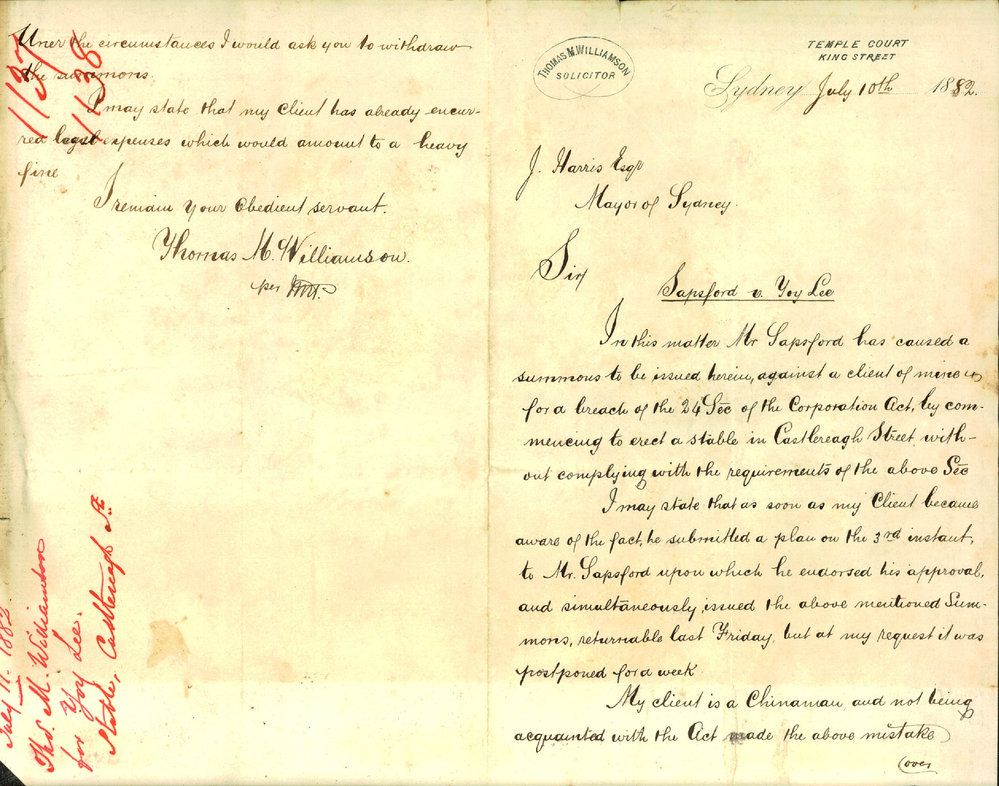 THOMAS M. WILLIAMSON
SOLICITOR
TEMPLE COURT
KING STREET
Sydney July 10th 1882.
J. Harris Esqr
Mayor of Sydney.
Sir
Sapsford v. Yoy Lee
In this matter Mr Sapsford has caused a
summons to be issued herein, against a client of mine
for a breach of the 24 Sec of the Corporation Act, by com-
mencing to erect a stable in Castlereagh Street with-
out complying with the requirements of the above Sec
I may state that as soon as my Client became
aware of the fact, he submitted a plan on the 3rd instant,
to Mr. Sapsford upon which he endorsed his approval,
and simultaneously issued the above mentioned Sum-
mons, returnable last Friday, but at my request it was
postponed for a week
My client is a Chinaman, and not being
acquainted with the Act made the above mistake
(over
Uner the circumstances I would ask you to withdraw
the summons.
I may state that my Client has already encur-
red legal expenses which would amount to a heavy
fine
I remain Your Obedient servant.
Thomas M. Williamson.
per
1137
1138
July 11. 1882.
Thos. M. Williamson
for Yoy Lee.
Stable, Castlereagh St.